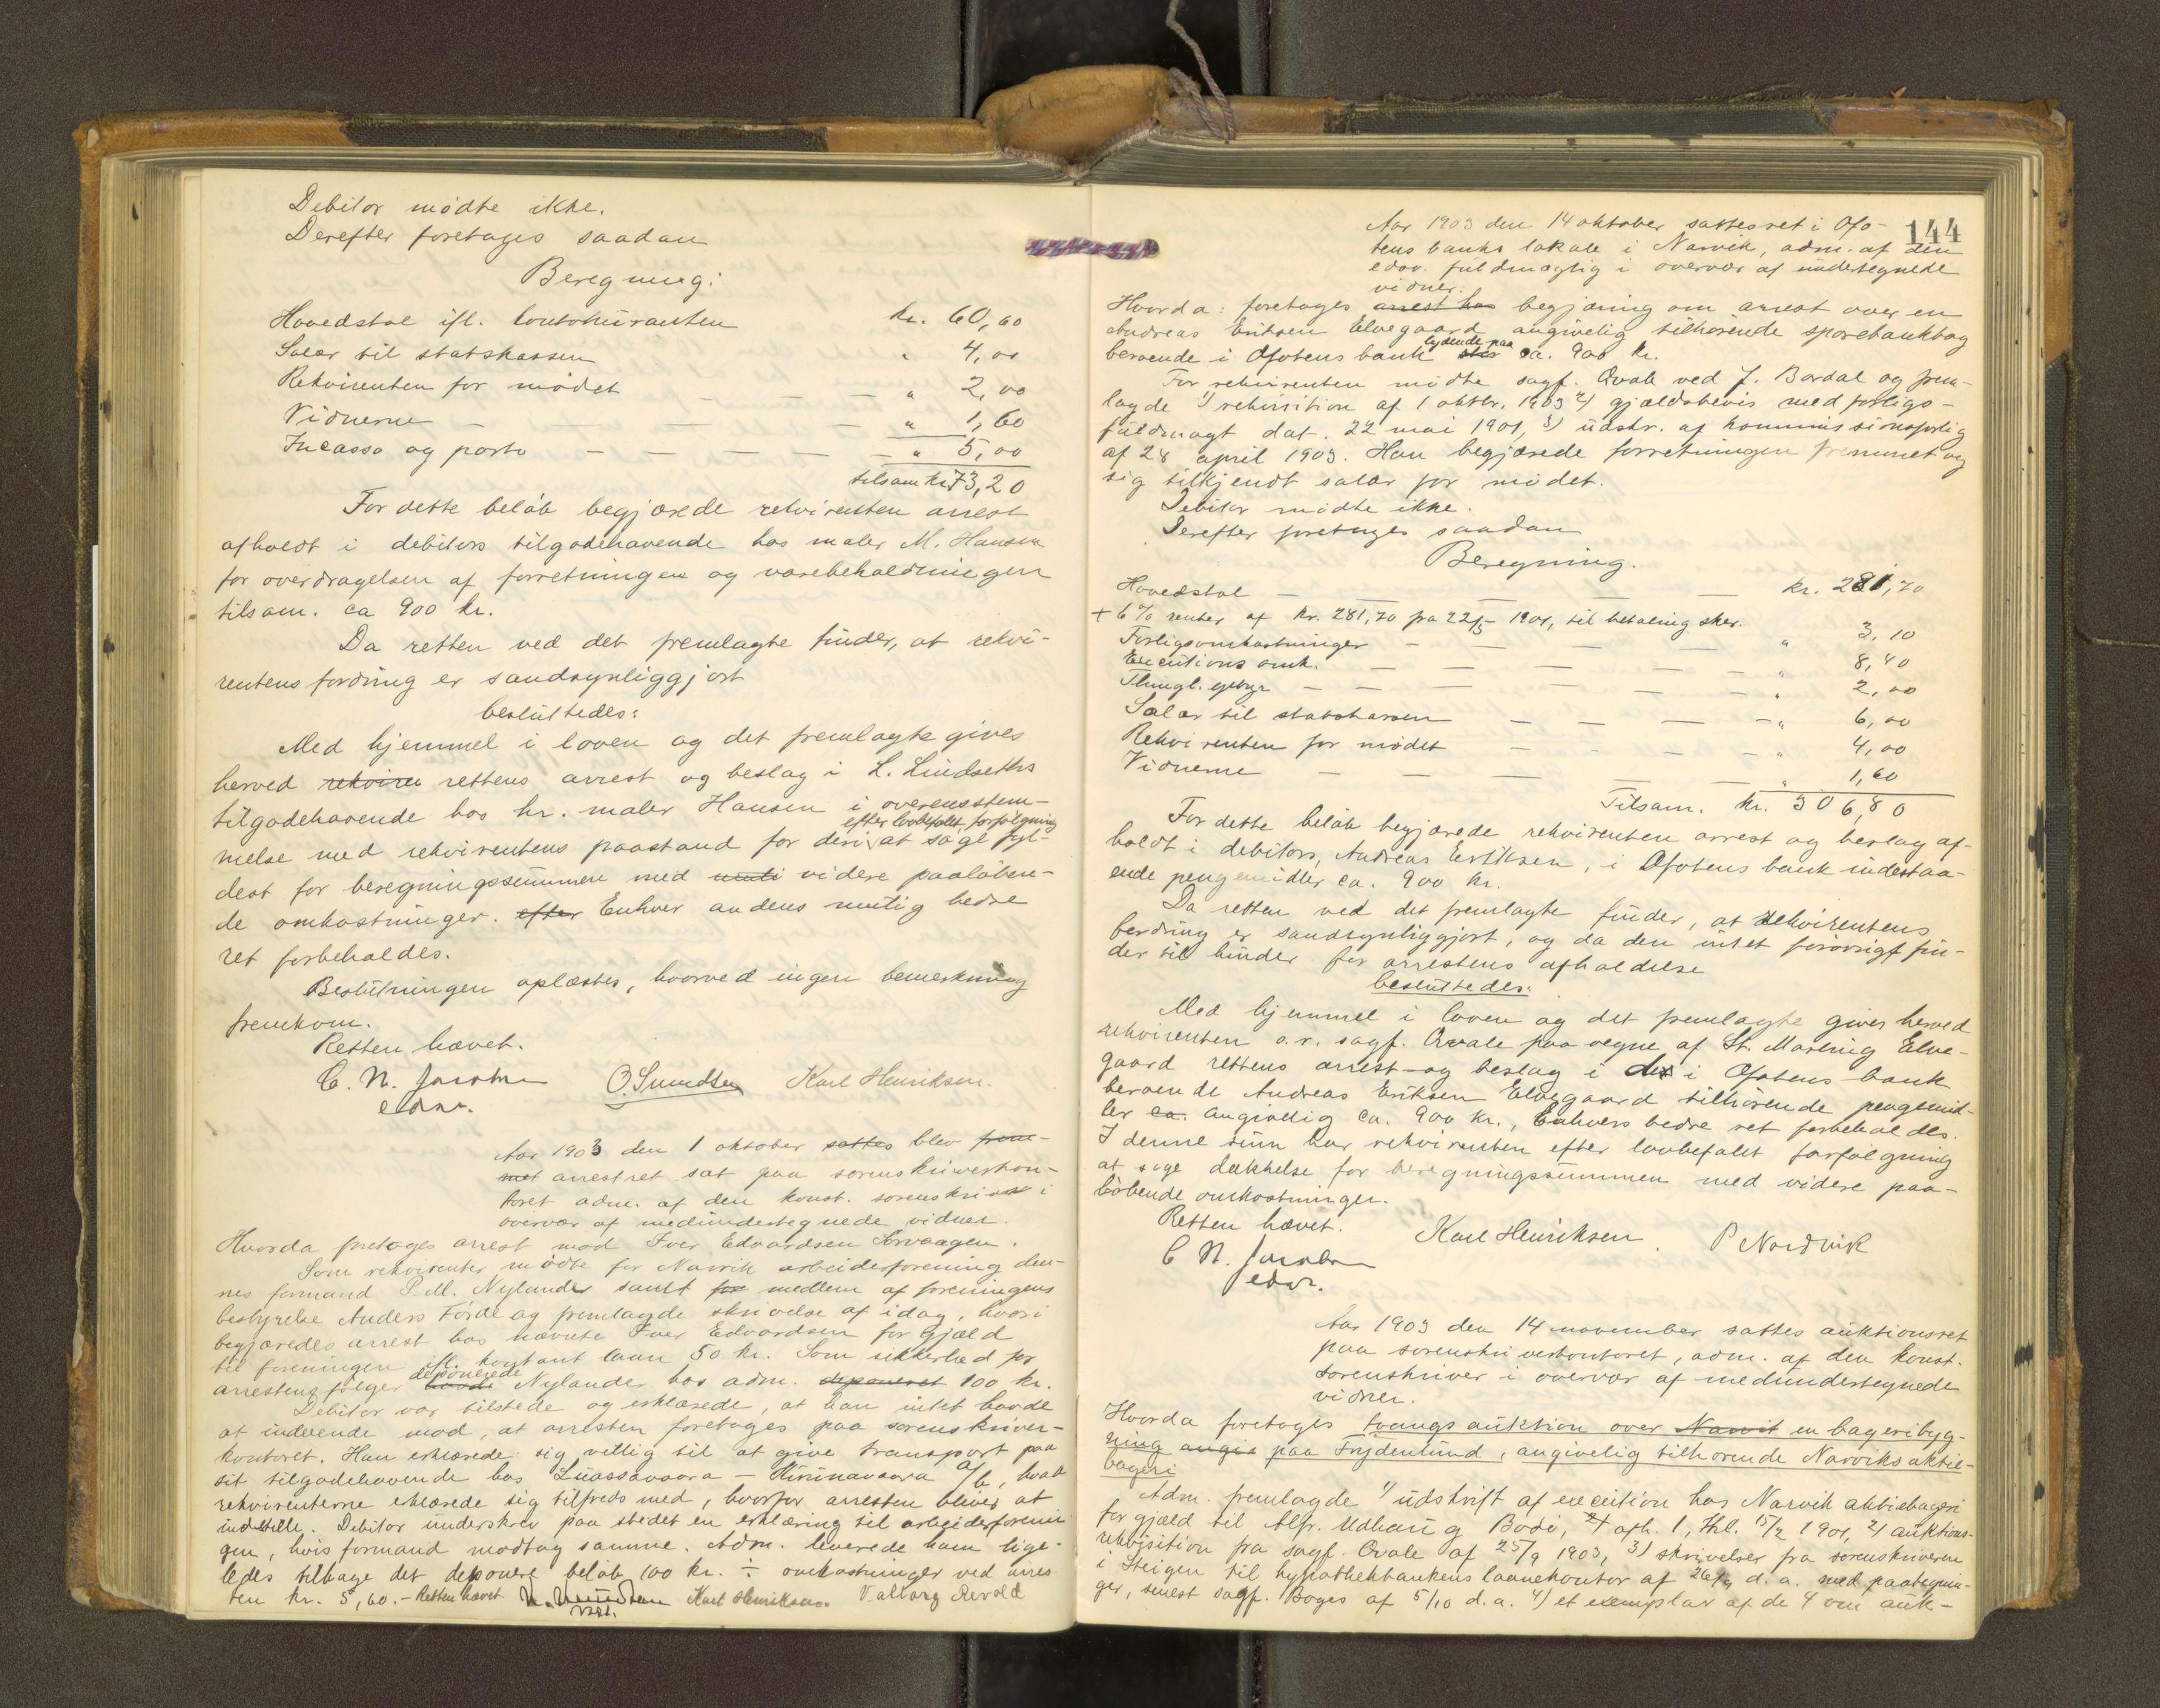 Debitor mødte ikke.
Derefter foretages saadan
Beregning:
Hovedstol ifl. kontokuranten kr. 60,60
Salær til statskassen " 4,00
Rekvirenten for mødet — — — " 2,00
Vidnerne — — — — " 1,60
Incasso og porto — — — — " 5,00
tilsam kr. 73,20
For dette beløb begjærede rekvirenten arrest
afholdt i debitors tilgodehavende hos maler M. Hansen
for overdragelsen af forretningen og varebeholdningen
tilsam. ca 900 kr.
Da retten ved det fremlagte finder, at rekvi-
rentens fordring er sandsynliggjort
besluttedes:
Med hjemmel i loven og det fremlagte gives
herved rekviren rettens arrest og beslag i L. Lindseths
tilgodehavende hos hr. maler Hansen i overensstem-
efter lovbefalt forfølgning
melse med rekvirentens paastand for deri at søge fyl-
dest for beregningssummen med videre paaløben-
de omkostninger. efter Enhver andens mulig bedre
ret forbeholdes.
Beslutningen oplæstes, hvorved ingen bemerkning
fremkom.
Retten hævet.
C. N. Jacobsen O. Smedsen Karl Henriksen.
edsv.
Aar 1903 den 1 oktober sattes blev frem-
met arrestret sat paa sorenskriverkon-
toret adm. af den konst. sorenskriver i
overvær af medundertegnede vidner.
Hvorda foretages arrest mod Iver Edvardsen Sorvaagen.
Som rekvirenter mødte for Narvik arbeiderforening den-
nes formand P. M. Nylander samt for medlem af foreningens
bestyrelse Anders Förde og fremlagde skrivelse af idag, hvori
begjæredes arrest hos nævnte Iver Edvardsen for gjæld
til foreningen ifl. kontant laan 50 kr. Som sikkerhed for
deponerede
arrestens følger havde Nylander hos adm. deponeret 100 kr.
Debitor var tilstede og erklærede, at han intet havde
at indvende mod, at arresten foretages paa sorenskriver-
kontoret. Han erklærede sig villig til at give transport paa
sit tilgodehavende hos Luossavaara — Kirunavaara a/b, hvad
rekvirenterne erklærede sig tilfreds med, hvorfor arresten bliver at
indstille. Debitor underskrev paa stedet en erklæring til arbeiderforenin
gen, hvis formand modtog samme. Adm. leverede ham lige-
ledes tilbage det deponere beløb 100 kr. ÷ omkostninger ved arres
ten kr. 5,60. — Retten hævet. Karl Henriksen. Valborg Revold
144
Aar 1903 den 14 oktober sattes ret i Ofo-
tens banks lokale i Narvik, adm. af den
edsv. fuldmægtig i overvær af undertegnede
vidner.
Hvorda: foretages arrest hos begjæring om arrest over en
Andreas Eriksen Elvegaard angivelig tilhørende sparebankbog
lydende paa
beroende i Ofotens bank stor ca. 900 kr.
For rekvirenten mødte sagf. Qvale ved J. Bardal og frem-
lagde 1) rekvisition af 1 oktbr. 1903 2) gjældsbevis med forligs-
fuldmagt dat. 22 mai 1901, 3) udskr. af kommissionsforlig
af 28 april 1903. Han begjærede forretningen fremmet og
sig tilkjendt salær for mødet.
Debitor mødte ikke.
Derefter foretages saadan
Beregning.
Hovedstol — — — — — kr. 281,70
+ 6 % renter af kr. 281,70 fra 22/5 1901, til betaling sker.
Forligsomkostninger — — — — " 3,10
Executions omk. — — — — " 8,40
Thingl. gebyr — — — — " 2,00
Salær til statskassen — — — — " 6,00
Rekvirenten for mødet — — — — " 4,00
Vidnerne — — — — " 1,60
Tilsam. kr. 306,80
For dette beløb begjærede rekvirenten arrest og beslag af-
holdt i debitors, Andreas Eriksen, i Ofotens bank indestaa-
ende pengemidler ca. 900 kr.
Da retten ved det fremlagte finder, at rekvirentens
fordring er sandsynliggjort, og da den intet forøvrigt fin-
der til hinder for arrestens afholdelse
besluttedes:
Med hjemmel i loven og det fremlagte gives herved
rekvirenten o.r. sagf. Qvale paa vegne af St. Mælring Elve-
gaard rettens arrest og beslag i de i Ofotens bank
beroende Andreas Eriksen Elvegaard tilhørende pengemid-
ler ca. angivelig ca. 900 kr., Enhvers bedre ret forbeholdes.
I denne sum har rekvirenten efter lovbefalet forfølgning
at søge dækkelse for beregningssummen med videre paa-
løbende omkostninger.
Retten hævet.
C N. Jacobsen Karl Henriksen. P Nordvik
edsv.
Aar 1903 den 14 november sattes auktionsret
paa sorenskriverkontoret, adm. af den konst.
sorenskriver i overvær af medundertegnede
vidner.
Hvorda foretages tvangsauktion over Narvik en bageribyg-
ning angiv paa Frydenlund, angivelig tilhørende Narviks aktie-
bageri
Adm. fremlagde 1) udskrift af execution hos Narvik aktiebageri
for gjæld til Alfr. Udhaug Bodø, 2) afh. 1, thl. 15/2 1901, 2) auktions-
rekvisition fra sagf. Qvale af 25/9 1903, 3) skrivelser fra sorenskriveren
i Steigen til hypothekbankens laanekontor af 26/9 d. a. med paategnin-
ger, senest sagf. Boges af 5/10 d. a. 4) et exemplar af de 4 om auk-